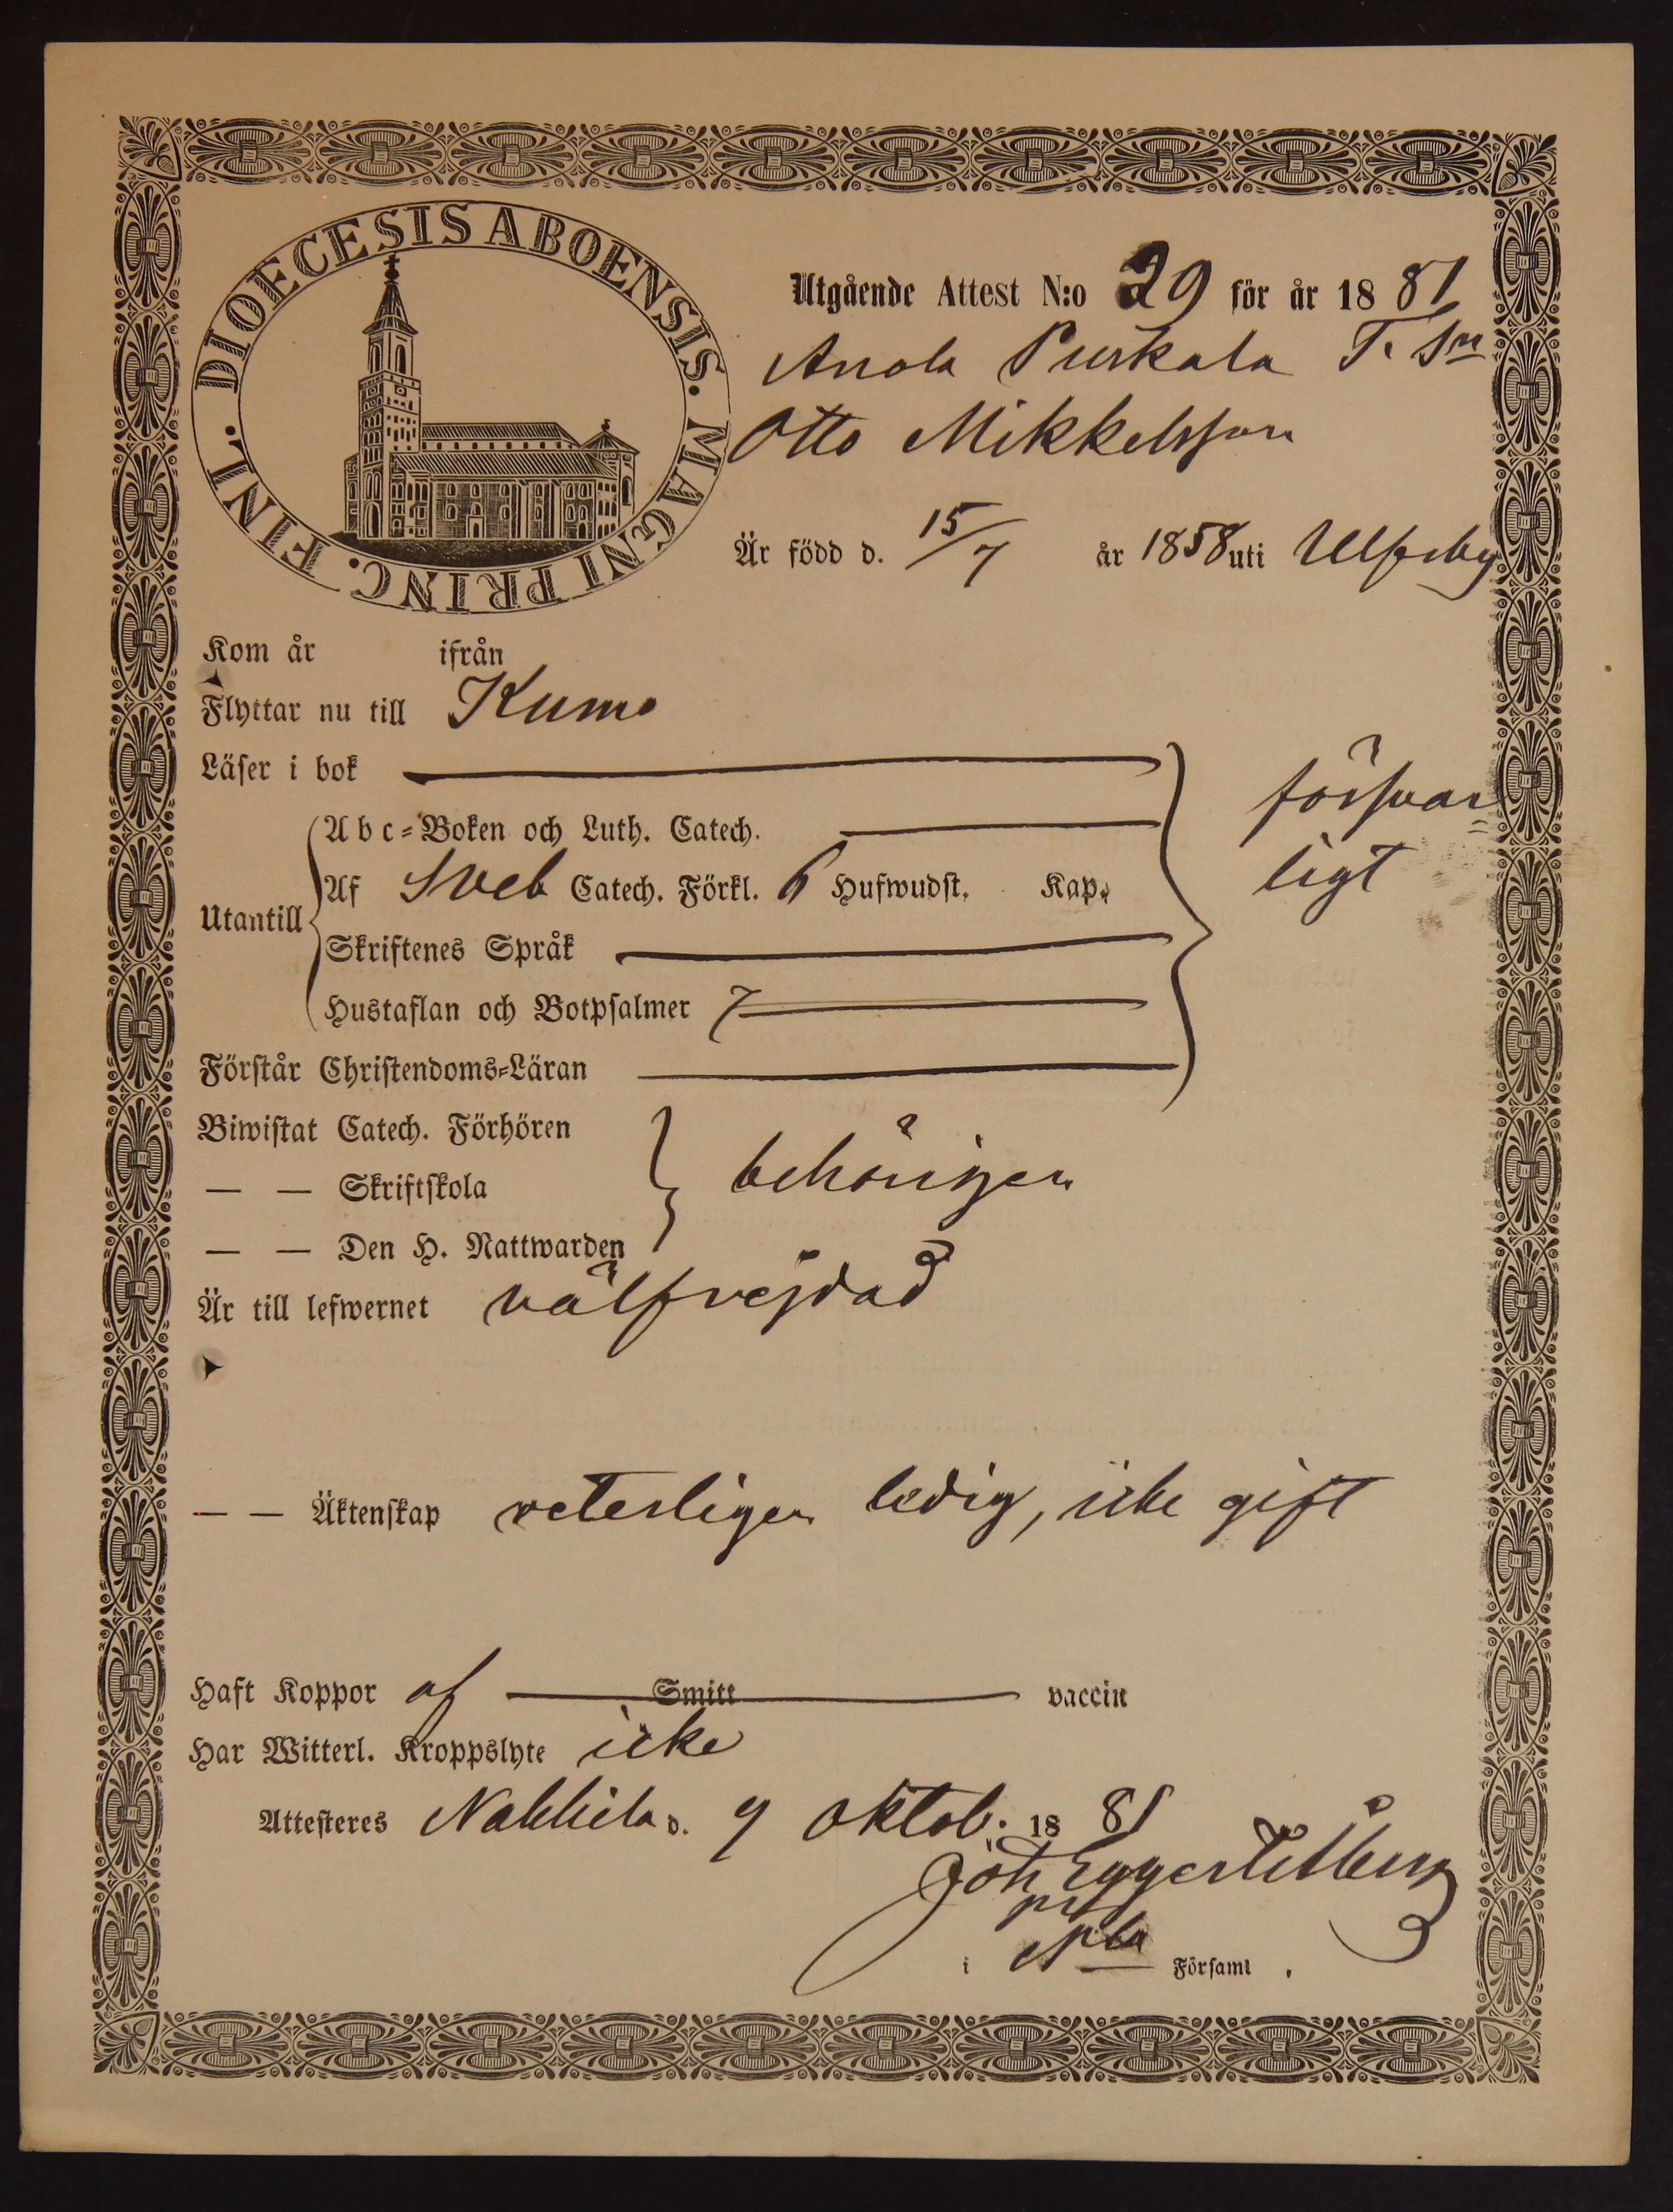 DIOECESIS ABOENSIS. MAGNI PRINC. FINL.
Utgående Attest N:o 29 för år 1881
Anola Purkala T. Sn
Otto Mikkelsson
Är född d. 15/7 år 1858 uti Ulfsby
Kom år ifrån
Flyttar nu till Kumo
Läser i bok
försvar
A b c=Boken och Luth. Catech.
Utantill
Af Sveb Catech. Förkl. 6 Hufwudst. Kap.
ligt
Skriftenes Språk
Hustaflan och Botpsalmer 7
Förstår Christendoms=Läran
Biwistat Catech. Förhören
— — Skriftskola behörigen
— — Den H. Nattwarden
Är till lefwernet välfrejdad
— — Äktenskap veterligen ledig, icke gift
Haft Koppor af Smitt vaccin
Har Witterl. Kroppslyte icke
Attesteres Nakkila d. 9 Oktob. 1881
Joh Eggert
i Nla Församl .